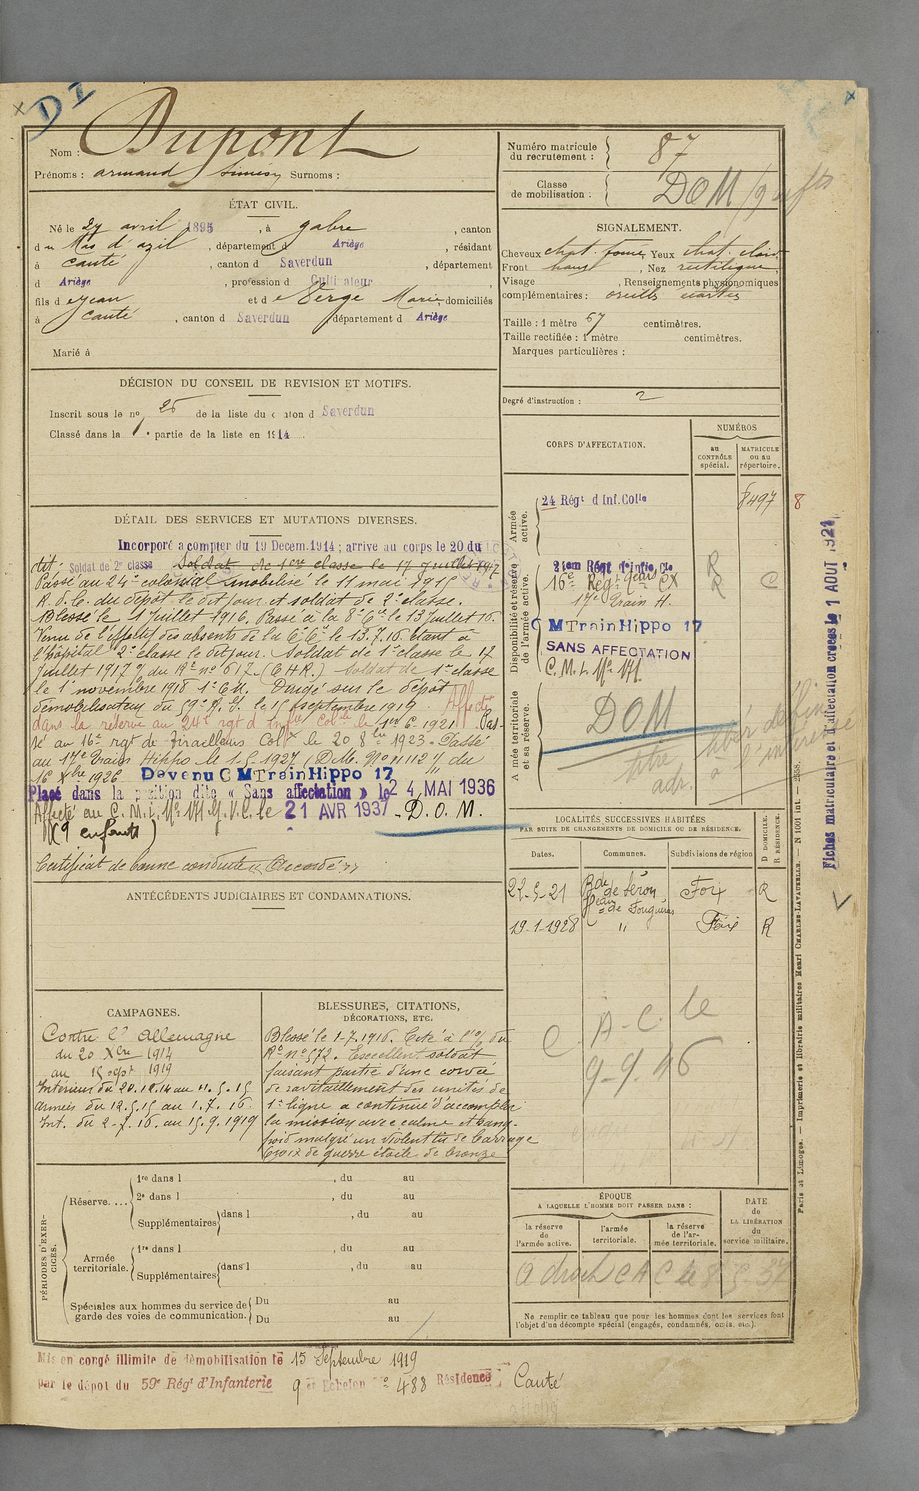 D I
Nom : Dupont
Prénoms : armand Surnoms :
Numéro matricule du recrutement : 87
Classe de mobilisation : DOM / 9 enfts
ÉTAT CIVIL.
Né le 29 avril 1895, à gabre, canton
du Mas d'azil, département d Ariège, résidant
à Canté, canton d Saverdun, département
d Ariège, profession d Cultivateur
fils d e Jean et d e Verge Marie, domiciliés
à Canté, canton d Saverdun département d Ariège
Marié à
SIGNALEMENT.
Cheveux chat. foncé Yeux chat. clair
Front haut, Nez rectiligne
Visage , Renseignements physionomiques
complémentaires : oreilles écartées
Taille : 1 mètre 67 centimètres.
Taille rectifiée : 1 mètre centimètres.
Marques particulières :
Degré d'instruction : 2
DÉCISION DU CONSEIL DE REVISION ET MOTIFS.
Inscrit sous le no 25 de la liste du canton d Saverdun
Classé dans la 1e partie de la liste en 1914
CORPS D'AFFECTATION.
NUMÉROS
au CONTRÔLE spécial.
MATRICULE ou au répertoire.
Armée active.
24 Régt d Inf. Colle
8497 8
Disponibilité et réserve de l'armée active.
24em Régt d'Infie Cle R
16e Régt Ceaux CX R C
17e Train H.
C M Train Hippo 17
SANS AFFECTATION
C. M. I. No VII.
Armée territoriale et sa réserve.
DOM
DÉTAIL DES SERVICES ET MUTATIONS DIVERSES.
Incorporé à compter du 19 Decem. 1914 ; arrivé au corps le 20 du
dit. Soldat de 2e classe Soldat de 1ere classe le 17 juillet 1917
Passé au 24e colonial mobilisé le 11 mai 1915
R. d. C. du dépôt le dit jour et soldat de 2e classe.
Blessé le 1 Juillet 1916. Passé à la 8e Cie le 13 Juillet 16.
Venu de l'effectif des absents de la 6e Cie le 13.7.16 étant à
l'hôpital 2e classe le dit jour. Soldat de 1e classe le 17
Juillet 1917 o/ du Rt no 617. (C.H.R.) Soldat de 1e classe
le 1 novembre 1918 1e Cie. Dirigé sur le dépôt
démobilisateur du 59e R. I. le 15 septembre 1919. Affecté
dans la réserve au 24e rgt d'Infie Colle le 1er 6. 1921 Pas-
sé au 16e rgt de Tirailleurs Colx le 20 8bre 1923 - Passé
au 17e Train Hippo le 1.5.1927 (D.M. No 11112 du
16 Xbre 1926 Devenu C M Train Hippo 17
Placé dans la position dite « Sans affectation » le 24 MAI 1936
Affecté au C. M. I. No VII G. V. C. le 21 AVR 1937 - D. O. M.
(9 enfants)
Certificat de bonne conduite « Accordé »
ANTÉCÉDENTS JUDICIAIRES ET CONDAMNATIONS.
LOCALITÉS SUCCESSIVES HABITÉES
PAR SUITE DE CHANGEMENTS DE DOMICILE OU DE RÉSIDENCE.
Dates. Communes. Subdivisions de région
D DOMICILE. R RÉSIDENCE.
22-5-21 Bde de Séron Foix R
19-1-1928 " Foix R
C. A. C. le
9-9. 46
CAMPAGNES.
Contre l'Allemagne
du 20 Xbre 1914
au 15 sept 1919
Intérieur du 20.12.14 au 11.5.15
armées du 12.5.15 au 1.7.16
Int. du 2-7.16 au 15.9.1919
BLESSURES, CITATIONS,
DÉCORATIONS, ETC.
Blessé le 1-7.1916. Cité à l'o/ du
Rt no 572. Excellent soldat
faisant partie d'une corvée
de ravitaillement des unités de
1e ligne a continué d'accomplir
la mission avec calme et sang-
froid malgré un violent tir de barrage
Croix de guerre étoile de bronze
PÉRIODES D'EXERCICES.
Réserve....
1re dans l , du au
2e dans l , du au
Supplémentaires dans l , du au
Armée territoriale.
1re dans l , du au
Supplémentaires dans l , du au
Spéciales aux hommes du service de
garde des voies de communication.
Du au
Du au
ÉPOQUE
A LAQUELLE L'HOMME DOIT PASSER DANS :
la réserve de l'armée active.
l'armée territoriale.
la réserve de l'armée territoriale.
DATE de LA LIBÉRATION du service militaire.
Ne remplir ce tableau que pour les hommes dont les services font
l'objet d'un décompte spécial (engagés, condamnés, omis, etc.).
Mis en congé illimité de démobilisation le 15 Septembre 1919
par le dépôt du 59e Régt d'Infanterie 9 et Echelon No 488 Résidence Canté
Fiches matriculaire et d'affectation créées le 1 AOUT 1921
Paris et Limoges. — Imprimerie et librairie militaires Henri CHARLES-LAVAUZELLE. — N 1001 int. — 2358.